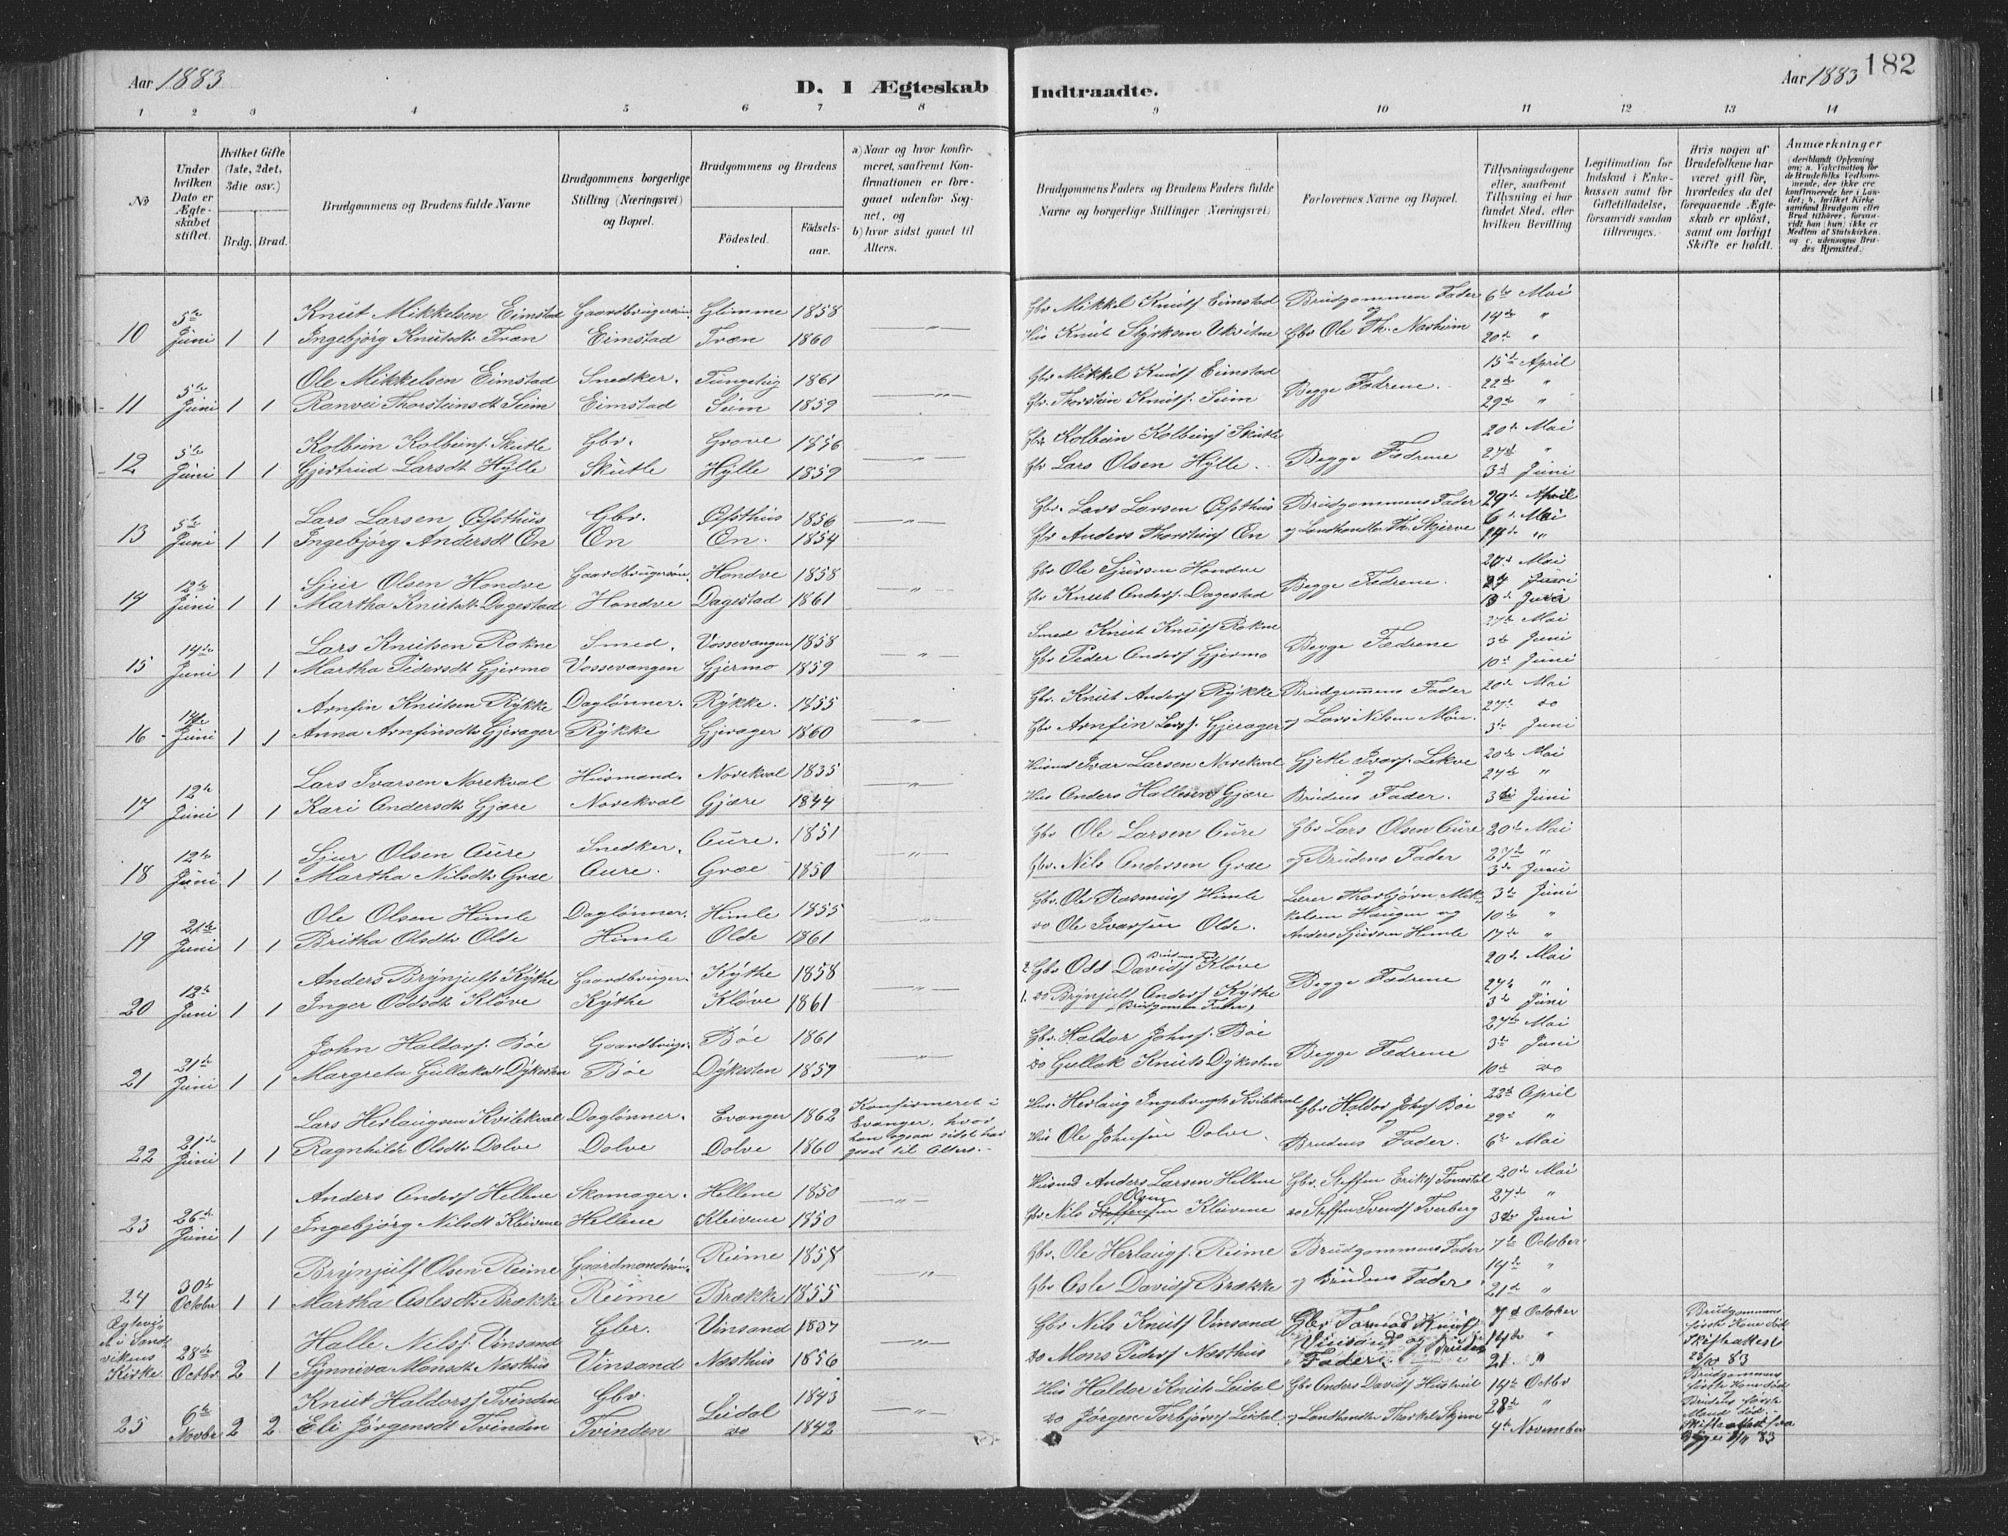 Aar 1883
D. I Ægteskab
Indtraadte.
Aar 1883
182
1 2 3 4 5 6 7 8 9 10 11 12 13 14
No
Under hvilken Dato er Ægteskabet stiftet.
Hvilket Gifte (1ste, 2det, 3die osv.)
Brdg. Brud.
Brudgommens og Brudens fulde Navne
Brudgommens borgerlige Stilling (Næringsvei) og Bopæl.
Brudgommens og Brudens
Fødested.
Fødselsaar.
a) Naar og hvor konfirmeret, saafremt Konfirmationen er foregaaet udenfor Sognet, og
b) hvor sidst gaaet til Alters.
Brudgommens Faders og Brudens Faders fulde Navne og borgerlige Stillinger (Næringsvei)
Forlovernes Navne og Bopæl.
Tillysningsdagene eller, saafremt Tillysning ei har fundet Sted, efter hvilken Bevilling
Legitimation for Indskud i Enkekassen samt for Giftetilladelse, forsaavidt saadan tiltrænges.
Hvis nogen af Brudefolkene har været gift før, hvorledes da det foregaaende Ægteskab er opløst, samt om lovligt Skifte er holdt.
Anmærkninger
10 5te Juni 1 1 Knut Mikkelsen Eimstad Gaardbrugersøn Glimme 1858 Gbr Mikkel Knuts Eimstad Brudgommen Fader 6te Mai
Ingebjørg Knutsdt Træn Eimstad Træn 1860 Hus Knut Styrksen Ukvitne og Gbr Ole Th. Nesheim 14de " 20de "
11 5te Juni 1 1 Ole Mikkelsen Eimstad Snedker. 1861 Gbr Mikkel Knuts Eimstad Begge Fædrene. 15de April
Ranvei Thorsteinsdt Seim Eimstad Seim 1859 Gbr. Thorstein Knuts. Seim 22de " 29de "
12 5te Juni 1 1 Kolbein Kolbeins. Skutle Gbr. Grove 1856 Gbr Kolbein Kolbeins Skutle Begge Fædrene 20de Mai
Gjertrud Larsdt Hylle Skutle Hylle 1859 Gbr Lars Olsen Hylle 27de " 3de Juni
13 5te Juni 1 1 Lars Larsen Øfsthus Gbr. Øfsthus 1856 Gbr. Lars Larsen Øfsthus Brudgommens Fader 29de April
Ingebjørg Andersdt Øn Øn Øn. 1854 Gbr Anders Thorsteins Øn og Landhandler Th. Skjerve 6te Mai 14de "
14 12te Juni 1 1 Sjur Olsen Hondve Gaardbrugersøn Hondve 1858 Gbr Ole Sjursen Hondve Begge Fædrene. Mai
Martha Knutsdt Dagestad Hondve Dagestad 1861 Gbr Knut Anders. Dagestad Juni Juni
15 14de Juni 1 1 Lars Knutsen Rokne Smed. Vossevangen 1858 Smed Knut Knuts Rokne Begge Fædrene 27de Mai
Martha Pedersdt Gjermo Vossevangen Gjermo 1859 Gbr Peder Anders Gjermo 3de Juni 10de Juni
16 Juni 1 1 Arnfin Knutsen Rykke Daglønner. Rykke. 1855 Gbr. Knut Anders Rykke Brudgommens Fader 20de Mai
Anna Arnfinsdt Gjerager Rykke Gjerager 1860 Gbr Arnfin Lars. Gjerager og Lars Nilsen Møn 27de do 3de Juni
17 12te Juni 1 1 Lars Ivarsen Norekval Husmand. Norekval 1835 Husmd Ivar Larsen Norekval Gjetle Ivars. Lekve 20de Mai
Kari Andersdt Gjøre Norekval Gjøre 1844 Hus Anders Hallesen Gjøre og Brudens Fader. 27de " 3de Juni
18 12te Juni 1 1 Sjur Olsen Aure Snedker. Aure. 1851 Gbr Ole Larsen Aure Gbr Lars Olsen Aure 20de Mai
Martha Nilsdt Græ Aure. Græ 1850 Gbr. Nils Andersen Græ og Brudens Fader 27de " 3de Juni
19 21de Juni 1 1 Ole Olsen Himle Daglønner. Himle 1855 Gbr. Ole Rasmus Himle Lærer Thorbjørn Mikkelsen Haugen og 3de Juni
Britha Olsdt Olde Himle Olde 1861 do Ole Ivarsen Olde. Anders Sjursen Himle 10de " 17de "
20 12te Juni 1 1 Anders Brynjulfs Kythe Gaardbruger. Kythe 1858 2. Gbr Odd Davids Kløve Begge Fædrene 20de Mai
Inger Oddsdt Kløve Kythe Kløve 1861 1. do Brynjulf Anders Kythe (Brudgommen Fader) 27de " 3de Juni
21 21de Juni 1 1 John Haldors. Bøe Gaardbrug. Bøe 1861 Gbr. Haldor Johns. Bøe Begge Fædrene 27de Mai
Margreta Gullaksdt Dykesten Bøe Dykesten 1857 do Gullak Knuts Dykesten 3de Juni 10de do
22 21de Juni 1 1 Lars Herlaugsen Kvilekval Daglønner. Evanger 1862 Konfirmeret i Evanger, hvor han ogsaa sidst har gaaet til Alters. Hus. Herlaug Ingebrigts Kvilekval Gbr Haldor Johns Bøe 22de April
Ragnhilde Olsdt Dolve Dolve Dolve 1860 Hus Ole Johnsen Dolve. og Brudens Fader. 29de " 6te Mai
23 26de Juni 1 1 Anders Anders Hellene Skomager. Hellene 1850 Husmd Anders Larsen Hellene Gbr. Steffen Eriks 20de Mai
Ingebjørg Nilsdt Kleivene Hellene Kleivene 1850 Gbr Nils Olsen Kleivene do Steffen Svends Tverberg 27de " 3de Juni
24 30te Octobr 1 1 Brynjulf Olsen Reime Gaardmandssøn Reime 1857 Gbr. Ole Herlaugs. Reime Brudgommens Fader 7de October
Martha Aslesdt Brække Reime Brække 1855 Gbr Asle Davids Brække og Brudens Fader 14de " 21de "
Ægtevi i Sandvikens Kirke 28de Octbr 2 1 Halle Nils. Vinsand Gbr. Vinsand 1837 Gbr Nils Knuts Vinsand Gbr Tormod Knuts 7de October
Synniva Monsdt Næsthus Vinsand Næsthus 1856 do Mons Peders Næsthus Vinsand og Brudens Fader 14de " 21. "
Brudgommens første Kone død Skifteattest 83
25 6te Novbr 2 2 Knut Haldors. Tvinden Gbr. Leidal 1843 Hus Haldor Knuts Leidal Gbr Anders Davids 14de Octbr
Eli Jørgensdt Tvinden Tvinden do 1842 do Jørgen Torbjørns Leidal og Landhandler Thorkel Skjerve 28de " 4de November
Brudgommens første Kone død Brudens første Mand død.